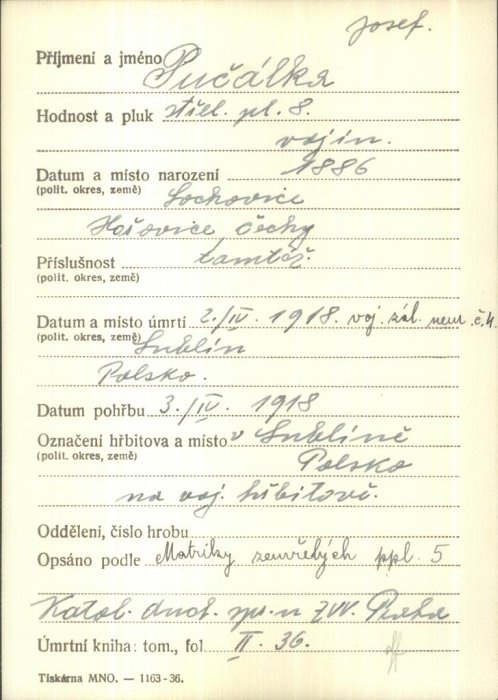 Josef.
Příjmení a jméno Pučálka
Hodnost a pluk střel. pl. 8.
vojín.
Datum a místo narození 1886
(polit. okres, země) Lochovice
Hořovice Čechy
Příslušnost tamtéž.
(polit. okres, země)
Datum a místo úmrtí 2./IV. 1918. voj. zál. nem. č. 4.
(polit. okres, země) Lublin
Polsko.
Datum pohřbu 3./IV. 1918
Označení hřbitova a místo v Lublině
(polit. okres, země) Polsko
na voj. hřbitově.
Oddělení, číslo hrobu
Opsáno podle Matriky zemřelých ppl. 5
Katol. duch. spr. ZVV. Praha
Úmrtní kniha: tom., fol II. 36.
Tiskárna MNO. — 1163-36.